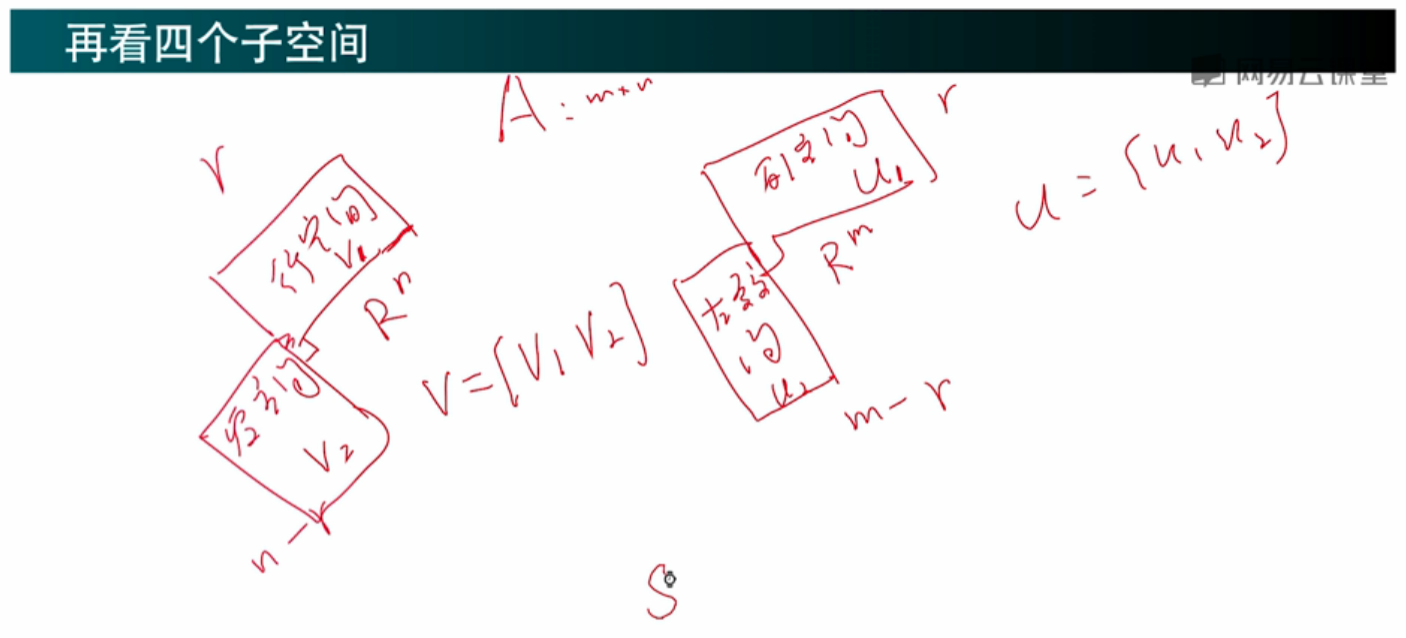 再看四个子空间
网易云课堂
A : m×n
r
行空间
V₁
Rⁿ
零空间
V₂
n-r
V=[V₁ V₂]
r
列空间
U₁
Rᵐ
左零空
间
U₂
m-r
U=[U₁ U₂]
S